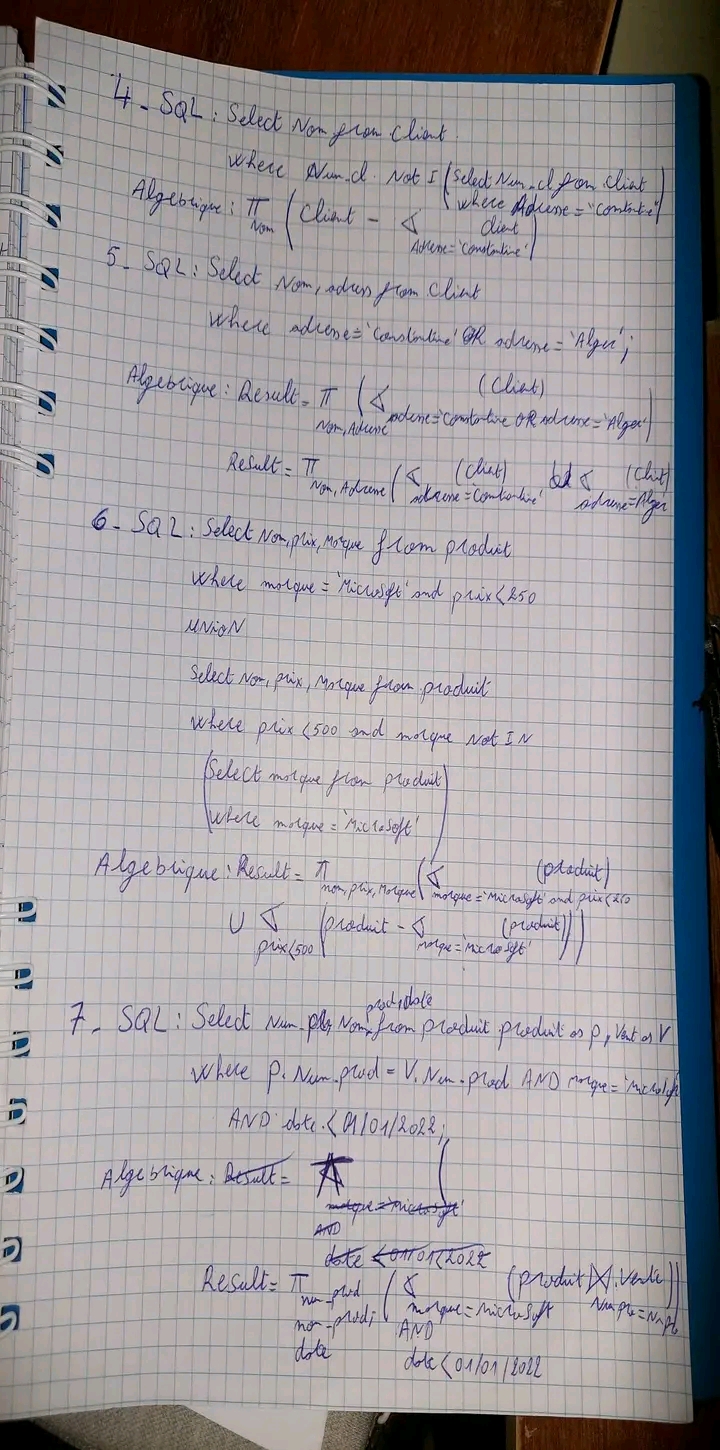 4- SQL: Select Nom from Client.
where Num_cl. Not I (Select Num_cl from Client
where Adresse = "Constantine")
Algebrique: π Nom (Client - σ Adresse='Constantine' client)
5- SQL: Select Nom, adress from Client
where adresse='Constantine' OR adresse='Alger';
Algebrique: Result= π Nom,Adresse (σ adresse=Constantine OR adresse='Alger' (Client))
Result= π Nom,Adresse (σ adresse=Constantine' (Client) σ adresse=Alger (Client)
6- SQL: Select Nom,prix,Marque from produit
where marque='MicroSoft' and prix<250
UNION
Select Nom, prix, Marque from produit
where prix<500 and marque Not IN
(Select marque from produit
where marque='MicroSoft')
Algebrique: Result= π nom,prix,Marque (σ marque='MicroSoft' and prix<250 (produit)
∪ σ prix<500 (produit - σ marque='MicroSoft' (produit)))
7- SQL: Select Num_ Nom prod,date from produit produit as p, Vent as V
where p.Num_prod = V.Num_prod AND marque='MicroSoft
AND date <01/01/2022;
Algebrique: Result= π (
marque='MicroSoft'
AND
date <01/01/2022
Result= π num_prod nom_prod; date (σ marque=MicroSoft AND date<01/01/2022 (produit ⋈ Vente))